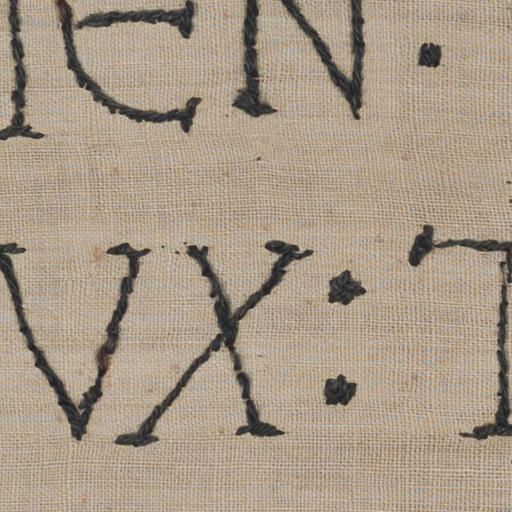 EN ·
VX : T